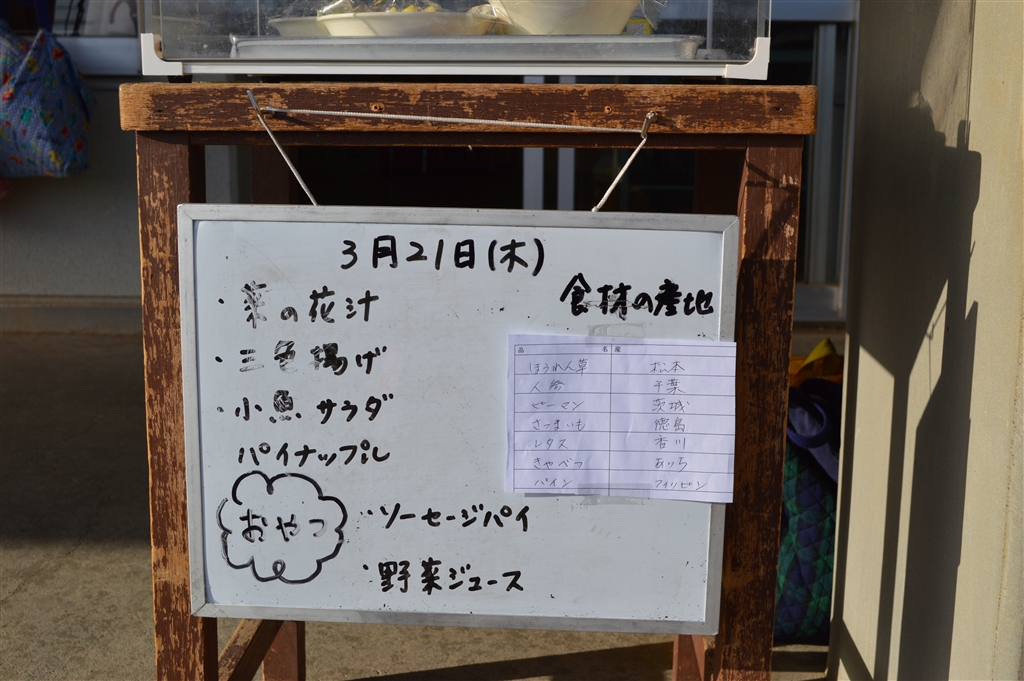 3月21日(木)
・菜の花汁
・三色揚げ
・小魚サラダ
パイナップル
おやつ
・ソーセージパイ
・野菜ジュース
食材の産地
品名 産
ほうれん草 松本
人参 千葉
ピーマン 茨城
さつまいも 徳島
レタス 香川
きゃべつ あいち
パイン フィリピン